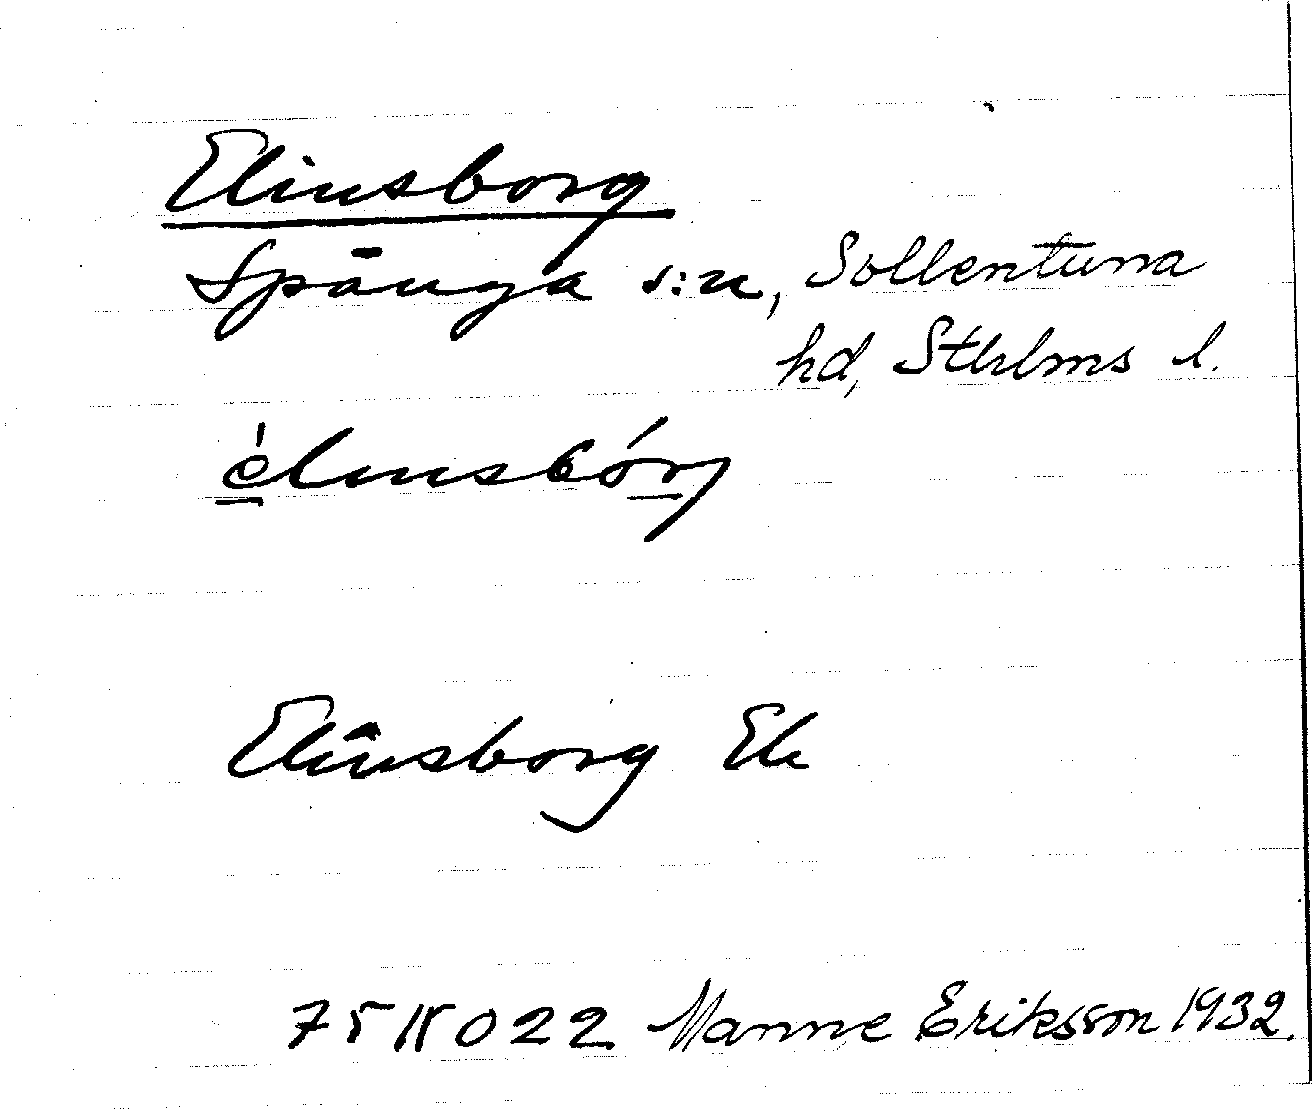 Elinsborg
Spånga s:n, Sollentuna
hd, Sthlms l.
élinsbórg
Elinsborg Ek
75 II 022 Manne Eriksson 1932.